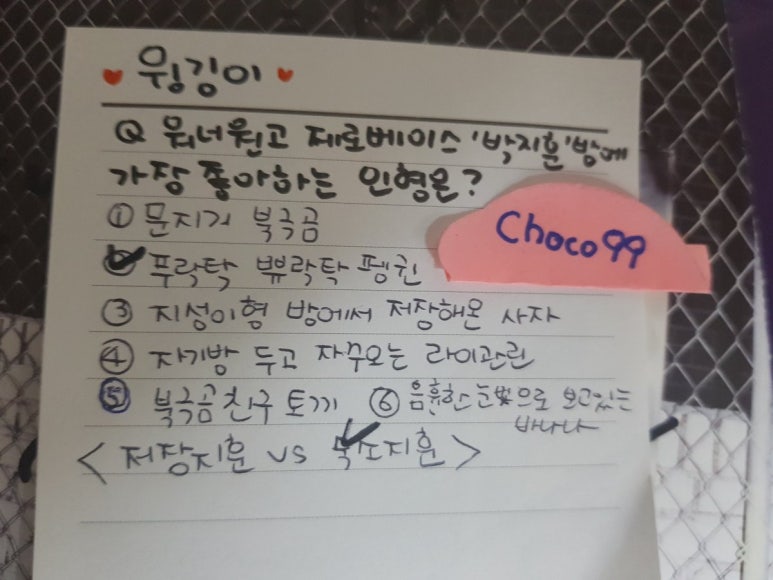 ♥ 윙깅이 ♥
Q 워너원고 제로베이스 '박지훈'방에
가장 좋아하는 인형은?
Choco99
① 문지기 북극곰
② 푸락탁 쀼락탁 펭귄
③ 지성이형 방에서 저장해온 사자
④ 자기방 두고 자꾸오는 라이관린
⑤ 북극곰친구 토끼 ⑥ 음흉한 눈빛으로 보고있는
바나나
< 저장지훈 vs 지훈 >